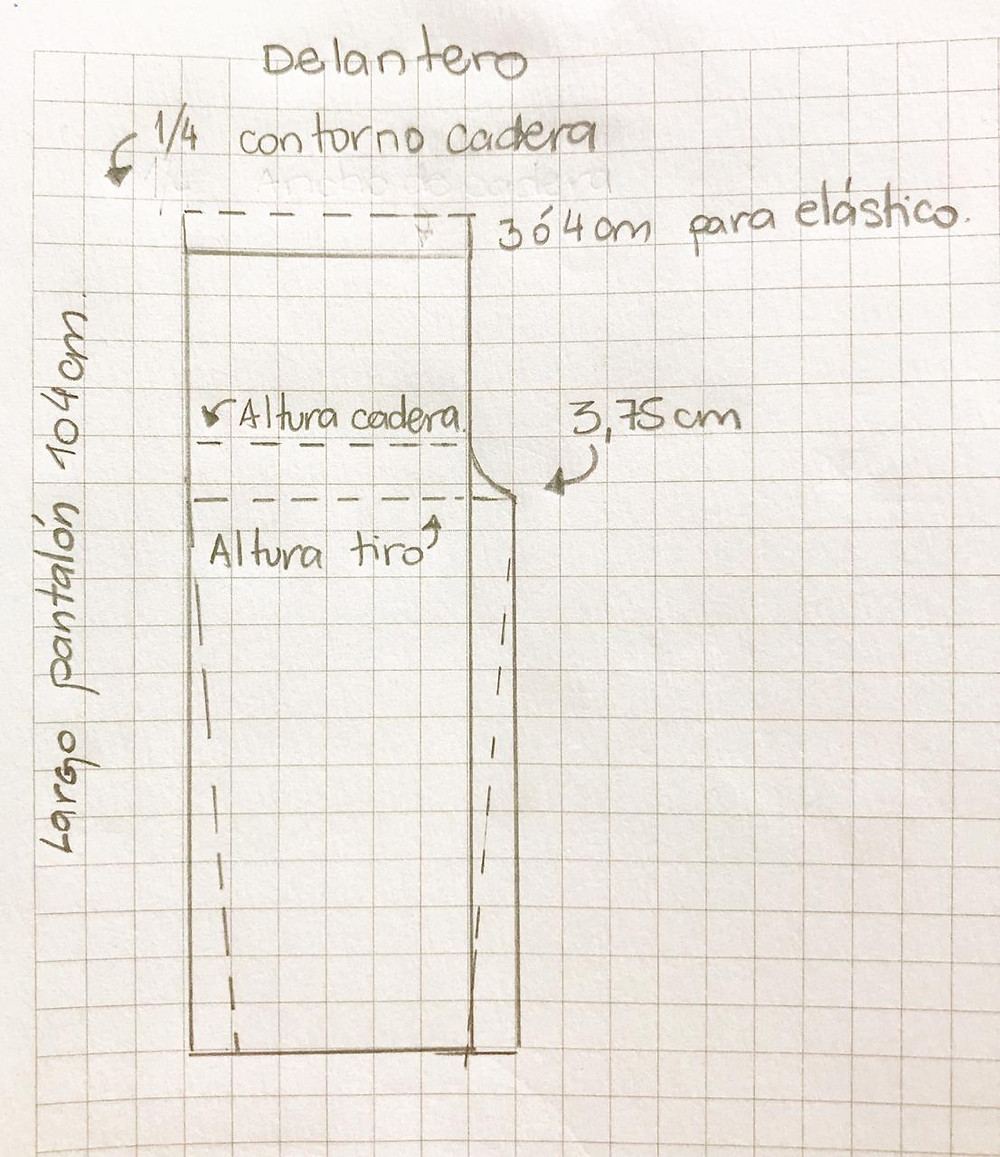 Delantero
1/4 contorno cadera
Ancho de cadera
3 ó 4 cm para elástico.
Largo pantalón 104cm.
Altura cadera
3,75cm
Altura tiro